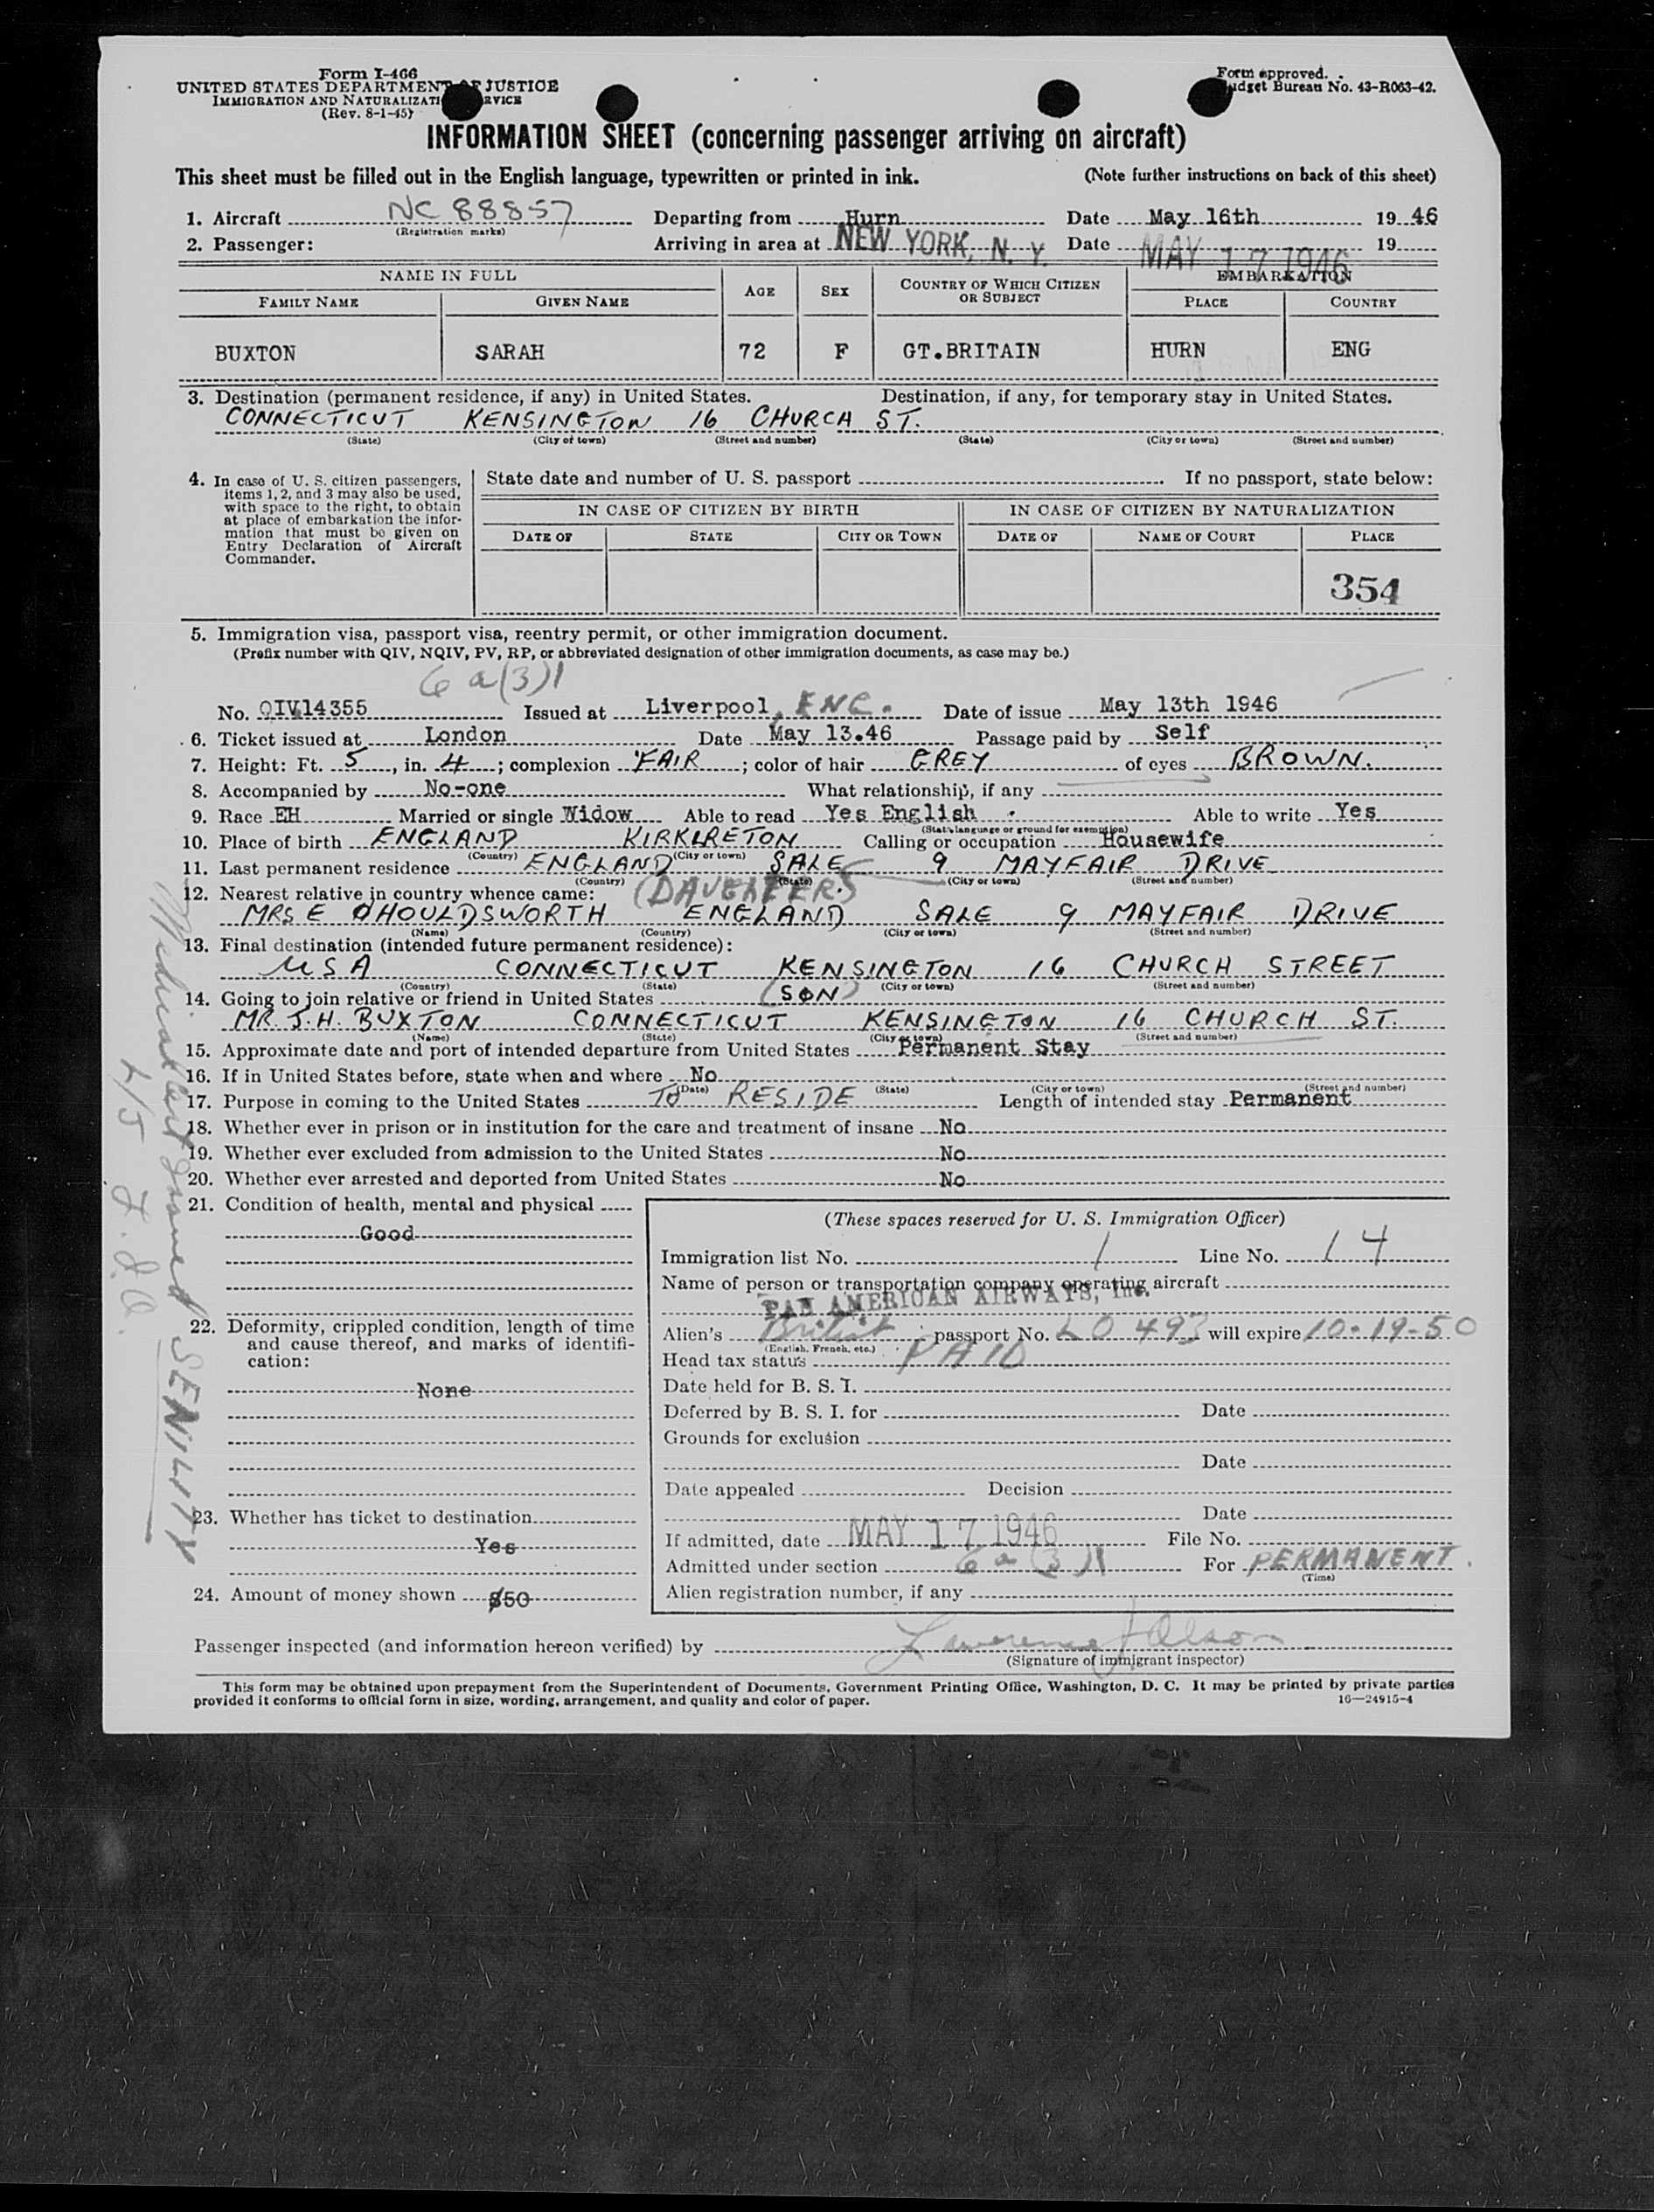 Form I-466
UNITED STATES DEPARTMENT OF JUSTICE
IMMIGRATION AND NATURALIZATI RVICE
(Rev. 8-1-45)
Form approved.
udget Bureau No. 43-R063-42.
INFORMATION SHEET (concerning passenger arriving on aircraft)
This sheet must be filled out in the English language, typewritten or printed in ink. (Note further instructions on back of this sheet)
1. Aircraft NC 88857 Departing from Hurn Date May 16th 1946
(Registration marks)
2. Passenger: Arriving in area at NEW YORK, N. Y. Date MAY 17 1946 19
NAME IN FULL AGE SEX COUNTRY OF WHICH CITIZEN OR SUBJECT EMBARKATION
FAMILY NAME GIVEN NAME PLACE COUNTRY
BUXTON SARAH 72 F GT.BRITAIN HURN ENG
3. Destination (permanent residence, if any) in United States. Destination, if any, for temporary stay in United States.
CONNECTICUT KENSINGTON 16 CHURCH ST.
(State) (City or town) (Street and number) (State) (City or town) (Street and number)
4. In case of U. S. citizen passengers, items 1, 2, and 3 may also be used, with space to the right, to obtain at place of embarkation the information that must be given on Entry Declaration of Aircraft Commander.
State date and number of U. S. passport If no passport, state below:
IN CASE OF CITIZEN BY BIRTH IN CASE OF CITIZEN BY NATURALIZATION
DATE OF STATE CITY OR TOWN DATE OF NAME OF COURT PLACE
354
5. Immigration visa, passport visa, reentry permit, or other immigration document.
(Prefix number with QIV, NQIV, PV, RP, or abbreviated designation of other immigration documents, as case may be.)
6 a(3)1
No. QIV14355 Issued at Liverpool, ENG. Date of issue May 13th 1946
6. Ticket issued at London Date May 13.46 Passage paid by Self
7. Height: Ft. 5, in. 4; complexion FAIR; color of hair GREY of eyes BROWN.
8. Accompanied by No-one What relationship, if any
9. Race EH Married or single Widow Able to read Yes English Able to write Yes
(State language or ground for exemption)
10. Place of birth ENGLAND KIRKLRETON Calling or occupation Housewife
(Country) (City or town)
11. Last permanent residence ENGLAND SALE 9 MAYFAIR DRIVE
(Country) (State) (City or town) (Street and number)
12. Nearest relative in country whence came: (DAUGHTER)
MRS E HOULDSWORTH ENGLAND SALE 9 MAYFAIR DRIVE
(Name) (Country) (City or town) (Street and number)
13. Final destination (intended future permanent residence):
USA CONNECTICUT KENSINGTON 16 CHURCH STREET
(Country) (State) (City or town) (Street and number)
14. Going to join relative or friend in United States (SON)
MR. J.H. BUXTON CONNECTICUT KENSINGTON 16 CHURCH ST.
(Name) (State) (City or town) (Street and number)
15. Approximate date and port of intended departure from United States Permanent Stay
16. If in United States before, state when and where No
(Date) (State) (City or town) (Street and number)
17. Purpose in coming to the United States TO RESIDE Length of intended stay Permanent
18. Whether ever in prison or in institution for the care and treatment of insane No
19. Whether ever excluded from admission to the United States No
20. Whether ever arrested and deported from United States No
21. Condition of health, mental and physical
Good
22. Deformity, crippled condition, length of time and cause thereof, and marks of identification:
None
23. Whether has ticket to destination
Yes
24. Amount of money shown $50
(These spaces reserved for U. S. Immigration Officer)
Immigration list No. 1 Line No. 14
Name of person or transportation company operating aircraft
PAN AMERICAN AIRWAYS, Inc.
Alien's British passport No. LO 493 will expire 10-19-50
(English, French, etc.)
Head tax status PAID
Date held for B. S. I.
Deferred by B. S. I. for Date
Grounds for exclusion
Date
Date appealed Decision
Date
If admitted, date MAY 17 1946 File No.
Admitted under section 6 a (3) 1 For PERMANENT.
(Time)
Alien registration number, if any
Medical Cert Issued SENILITY
Passenger inspected (and information hereon verified) by Lawrence J Olson
(Signature of immigrant inspector)
This form may be obtained upon prepayment from the Superintendent of Documents, Government Printing Office, Washington, D. C. It may be printed by private parties
provided it conforms to official form in size, wording, arrangement, and quality and color of paper. 16—24915-4